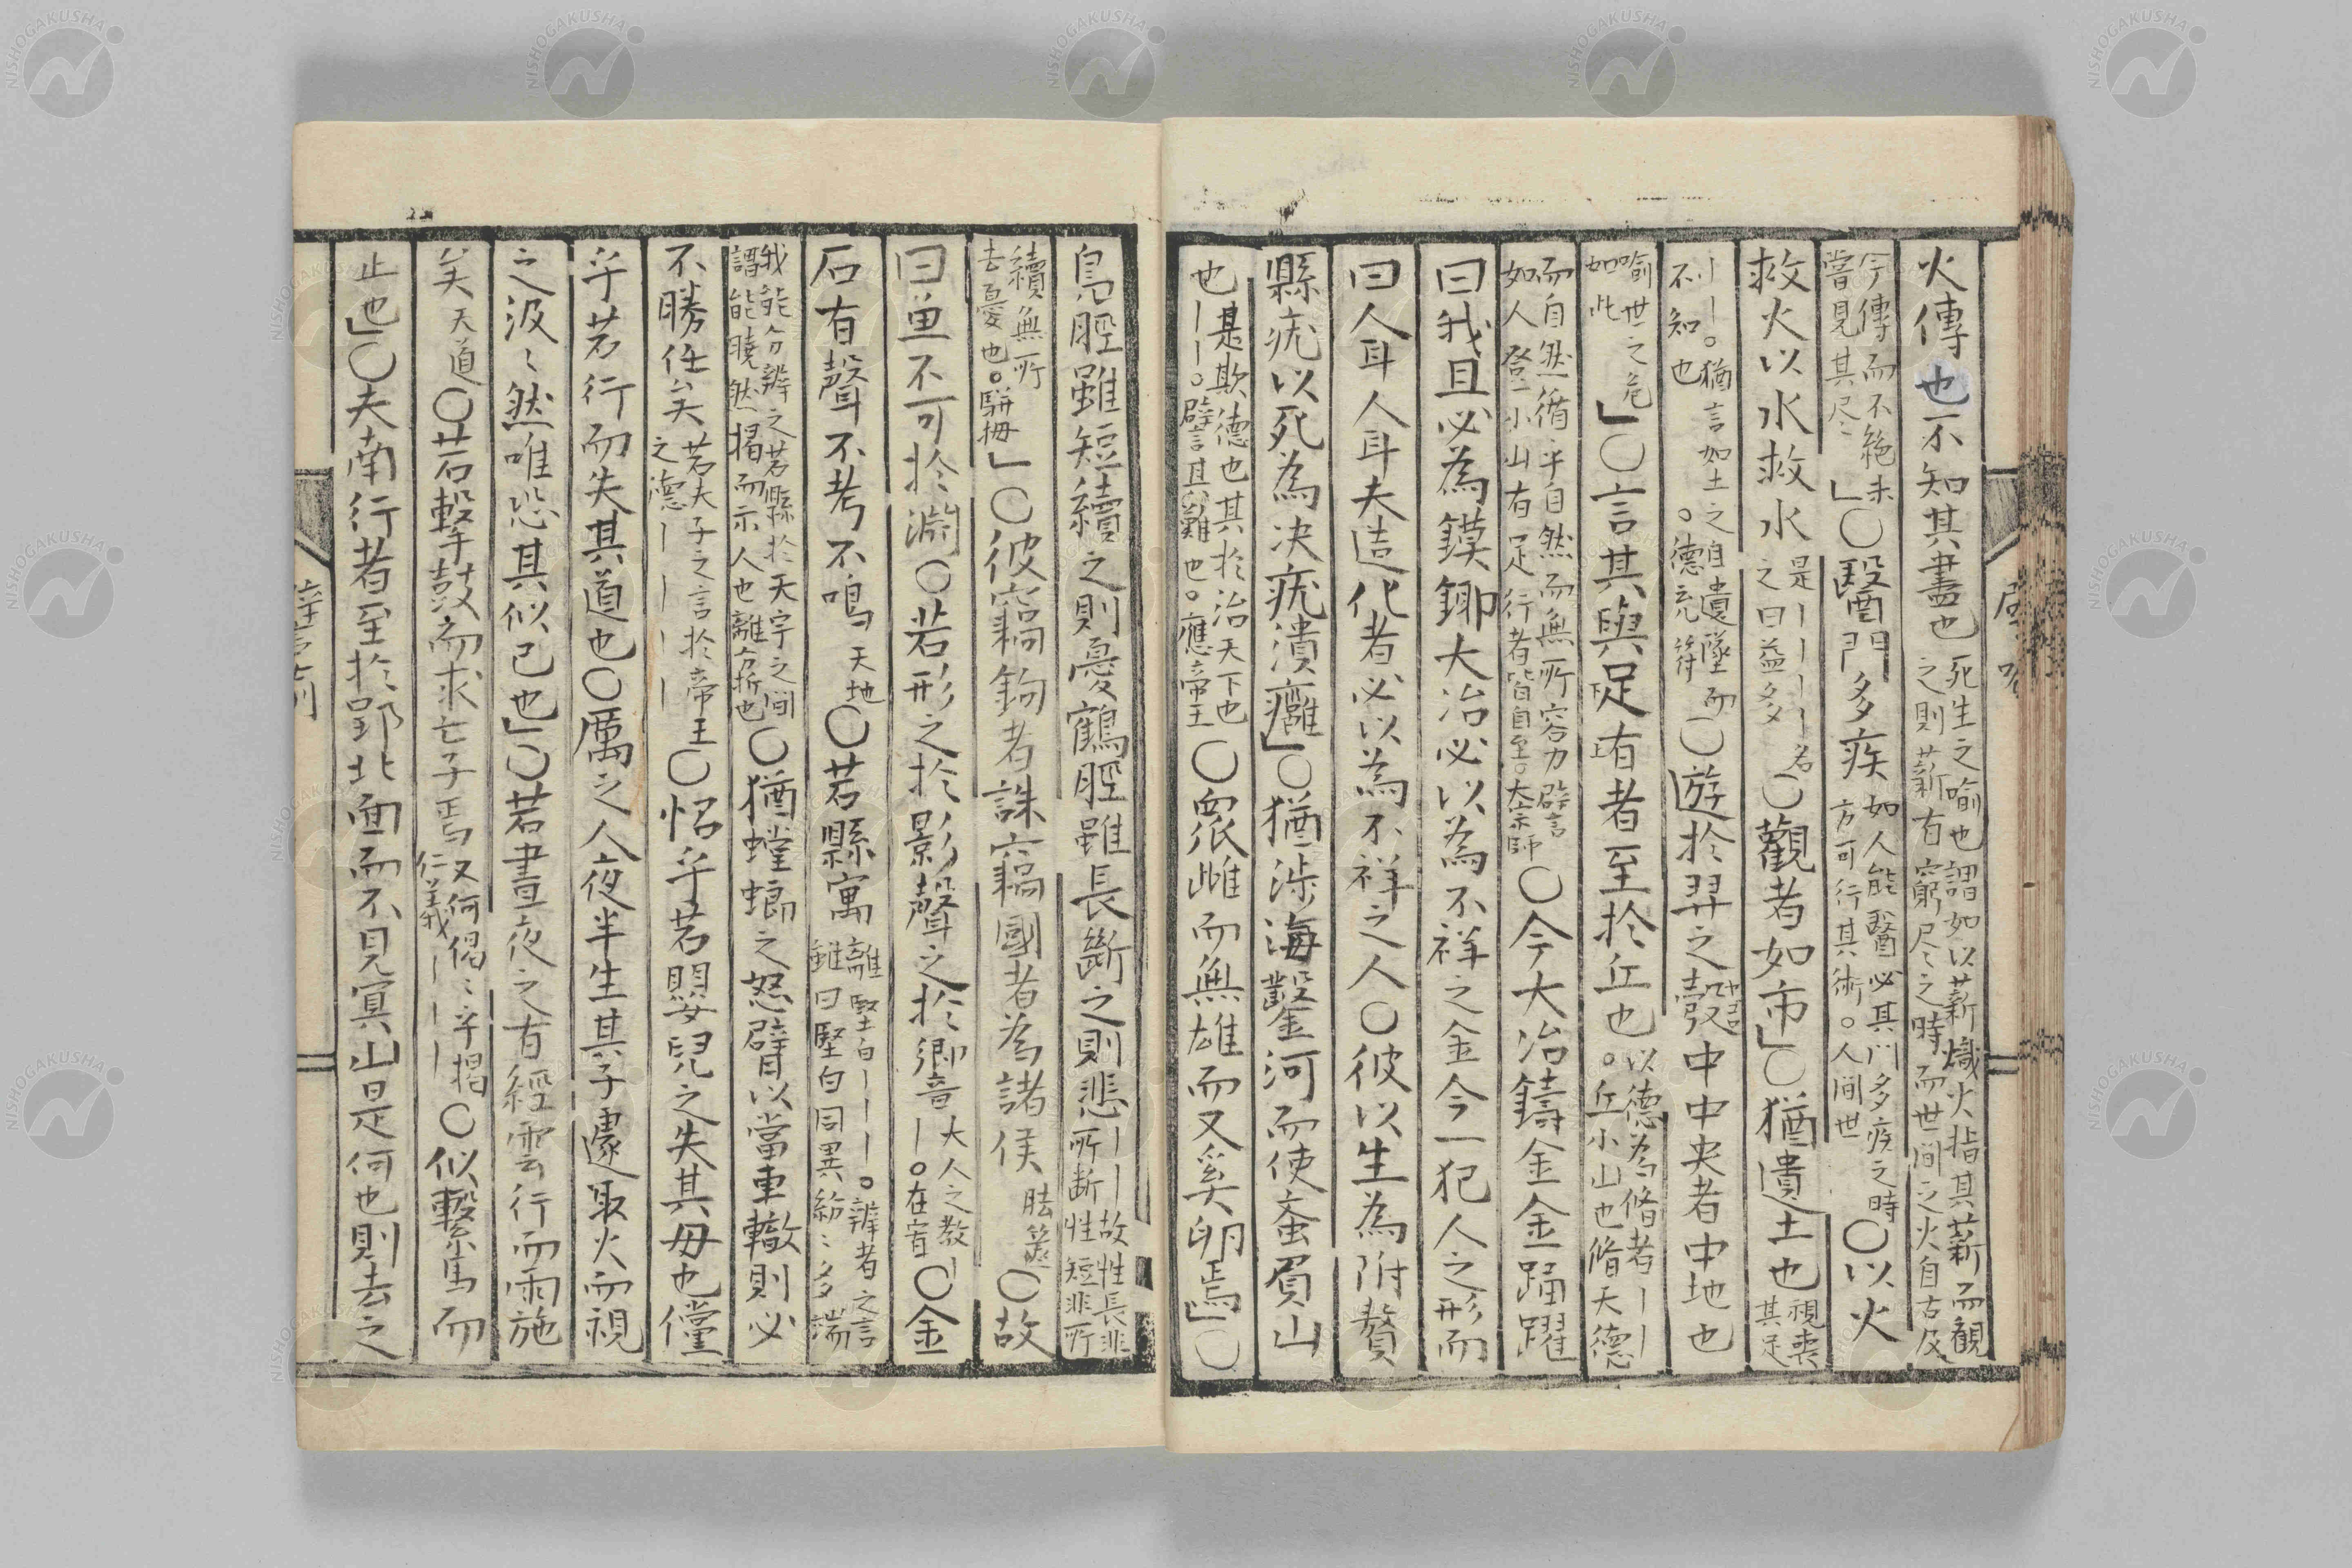 火傳也不知其盡也死生之喻也謂如以薪熾火指其薪而観之則薪有窮尽之時而世間之火自古及
今傳而不絶未嘗見其尽」〇醫門多疾如人能醫必其門多疾之時方可行其術。人間世〇以火
救火以水救水是｜｜｜｜名之曰益多〇觀者如市」〇猶遺土也視喪其足
｜｜。猶言如土之自遺墜而不知也。德充符〇遊於羿之彀中中央者中地也
喻世之危如此」〇言其與足有者至於丘也以德為脩者｜｜。丘小山也脩天德
而自然循乎自然而無所容力辟言如人登一小山有足行者皆自至。大宗師〇今大冶鑄金金踊躍
曰我且必為鏌鋣大冶必以為不祥之金今一犯人之形而
曰人耳人耳夫造化者必以為不祥之人〇彼以生為附贅
縣疣以死為决疣潰癰」〇猶涉海鑿河而使蚉負山
也是欺德也其於治天下也｜｜。譬且難也。應帝王〇衆雌而無雄而又奚卵焉」〇
鳧脛雖短續之則憂鶴脛雖長斷之則悲｜｜故性長非所断性短非所
續無所去憂也。駢拇」〇彼竊鉤者誅竊國者為諸侯胠篋〇故
曰魚不可於淵〇若形之於影聲之於郷音大人之教｜｜。在宥〇金
石有聲不考不鳴天地〇若縣寓離堅白｜｜｜。辨者之言雖曰堅白同異紛〻多端
我能分辨之若縣於天宇之間謂能曉然揭而示人也離方折也〇猶螳蜋之怒臂以當車轍則必
不勝任矣若夫子之言於帝王之德｜｜｜｜〇怊乎若嬰兒之失其毋也儻
乎若行而失其道也〇厲之人夜半生其子遽取火而視
之汲〻然唯恐其似己也」〇若晝夜之有經雲行而雨施
矣天道〇若擊鼓而求亡子焉又何偈〻乎揭仁義｜｜｜〇似繋馬而
止也」〇夫南行者至於郢北面而不見冥山是何也則去之